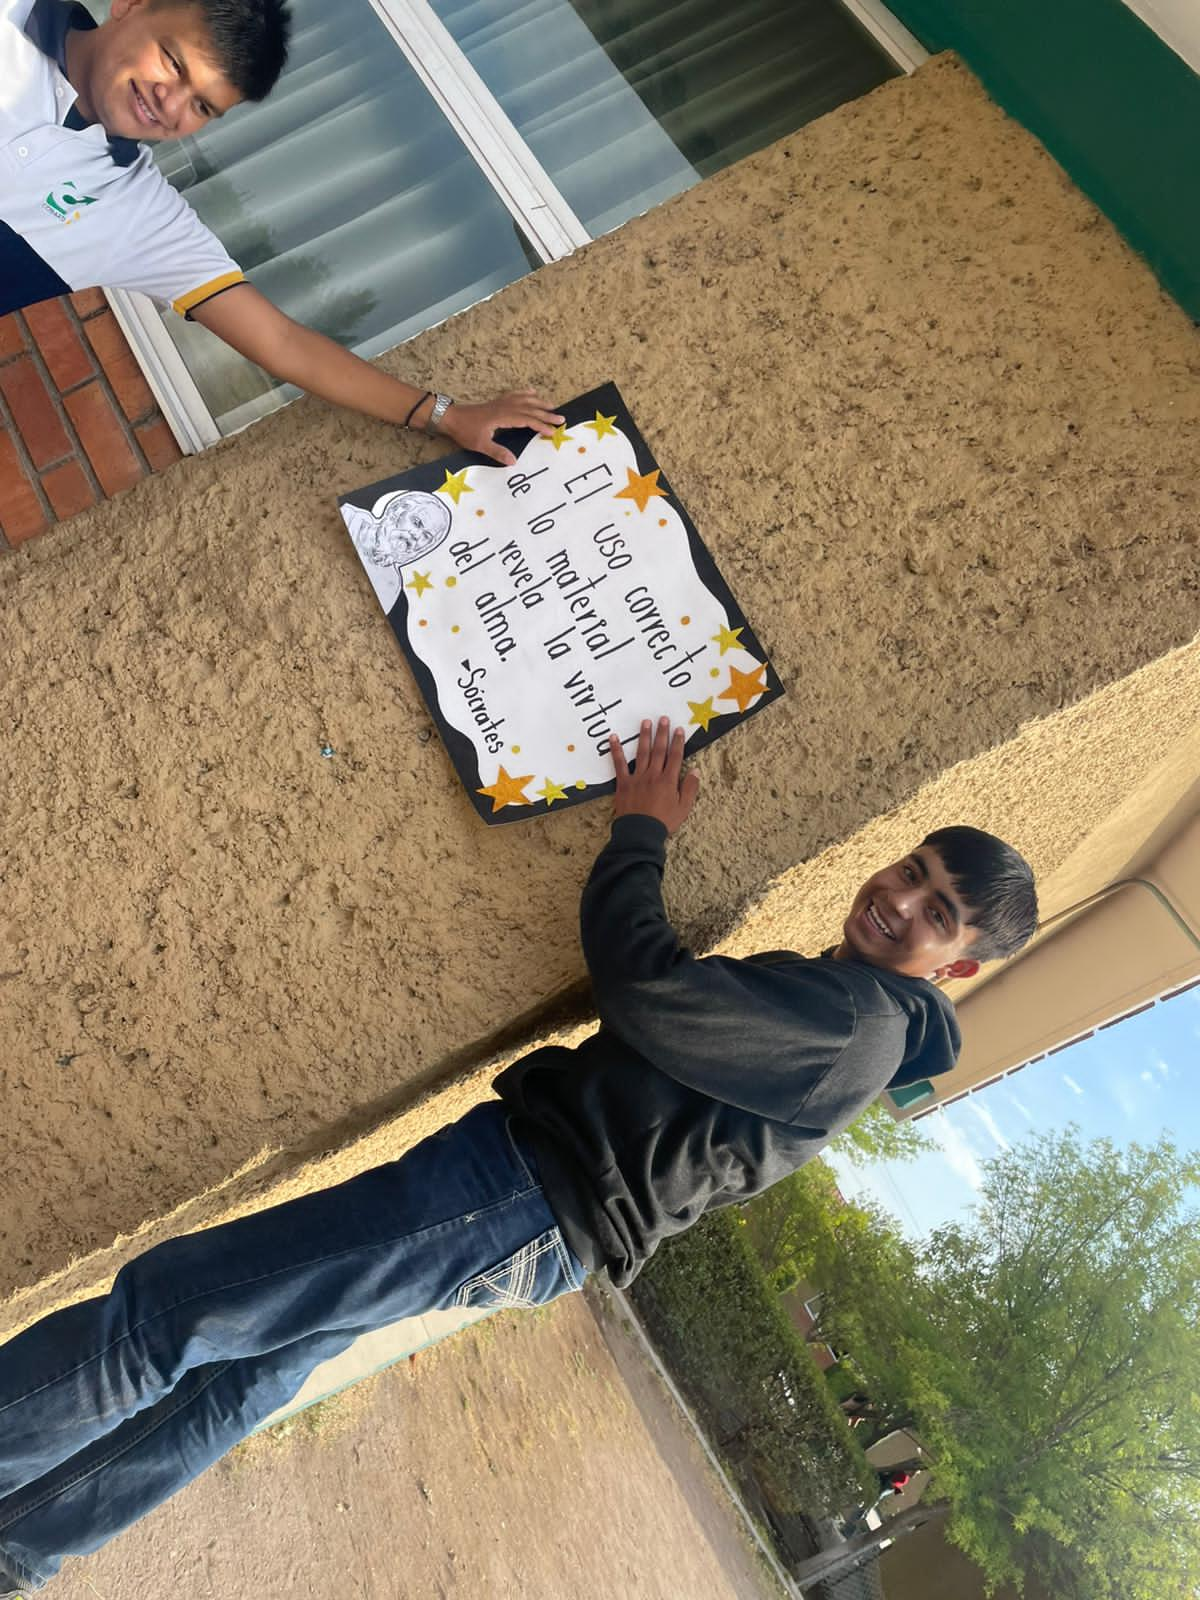 El uso correcto
de lo material
revela la virtud
del alma.
-Sócrates